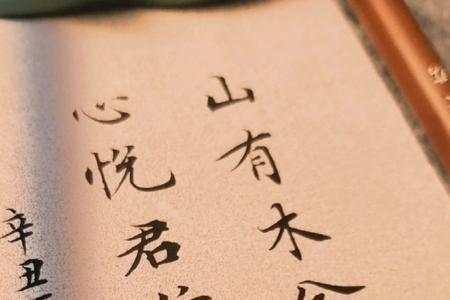 山有木
心悦君
辛丑